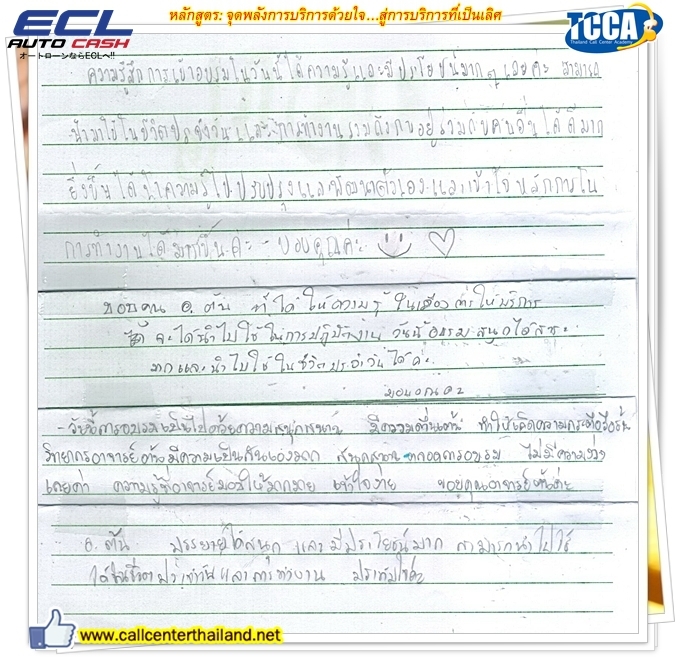 หลักสูตร: จุดพลังการบริการด้วยใจ...สู่การบริการที่เป็นเลิศ
ECL
AUTO CASH
ออโต้โลนในเครือECLฯ!!
TCCA
Thailand Call Center Academy
ความรู้สึกการเข้าอบรมในวันนี้ได้ความรู้และมีประโยชน์มากๆเลยค่ะ สามารถ
นำมาใช้ในชีวิตประจำวันและการทำงานรวมถึงการอยู่ร่วมกับคนอื่นได้ดีมาก
ยิ่งขึ้นได้นำความรู้ไปปรับปรุงและพัฒนาตัวเองและเข้าใจหลักการใน
การทำงานได้มากขึ้นค่ะ - ขอบคุณค่ะ
ขอบคุณ อ. ต้น ที่ได้ให้ความรู้ในเรื่องการให้บริการ
จะได้นำไปใช้ในการปฏิบัติงาน วันนี้อบรมสนุกได้สาระ
มากและนำไปใช้ในชีวิตประจำวันได้ค่ะ
ขอบคุณค่ะ
- วันนี้การอบรมเป็นไปด้วยความสนุกสนาน มีความตื่นเต้น ทำให้เกิดความกระตือรือร้น
วิทยากรอาจารย์ต้นมีความเป็นกันเองมาก สนุกสนานตลอดการอบรม ไม่มีความง่วง
เลยค่า ความรู้ที่อาจารย์มอบให้มากมาย เข้าใจง่าย ขอบคุณอาจารย์ต้นค่ะ
อ. ต้น บรรยายได้สนุก และมีประโยชน์มาก สามารถนำไปใช้
ได้ในชีวิตประจำวันและการทำงาน ประทับใจค่ะ
www.callcenterthailand.net